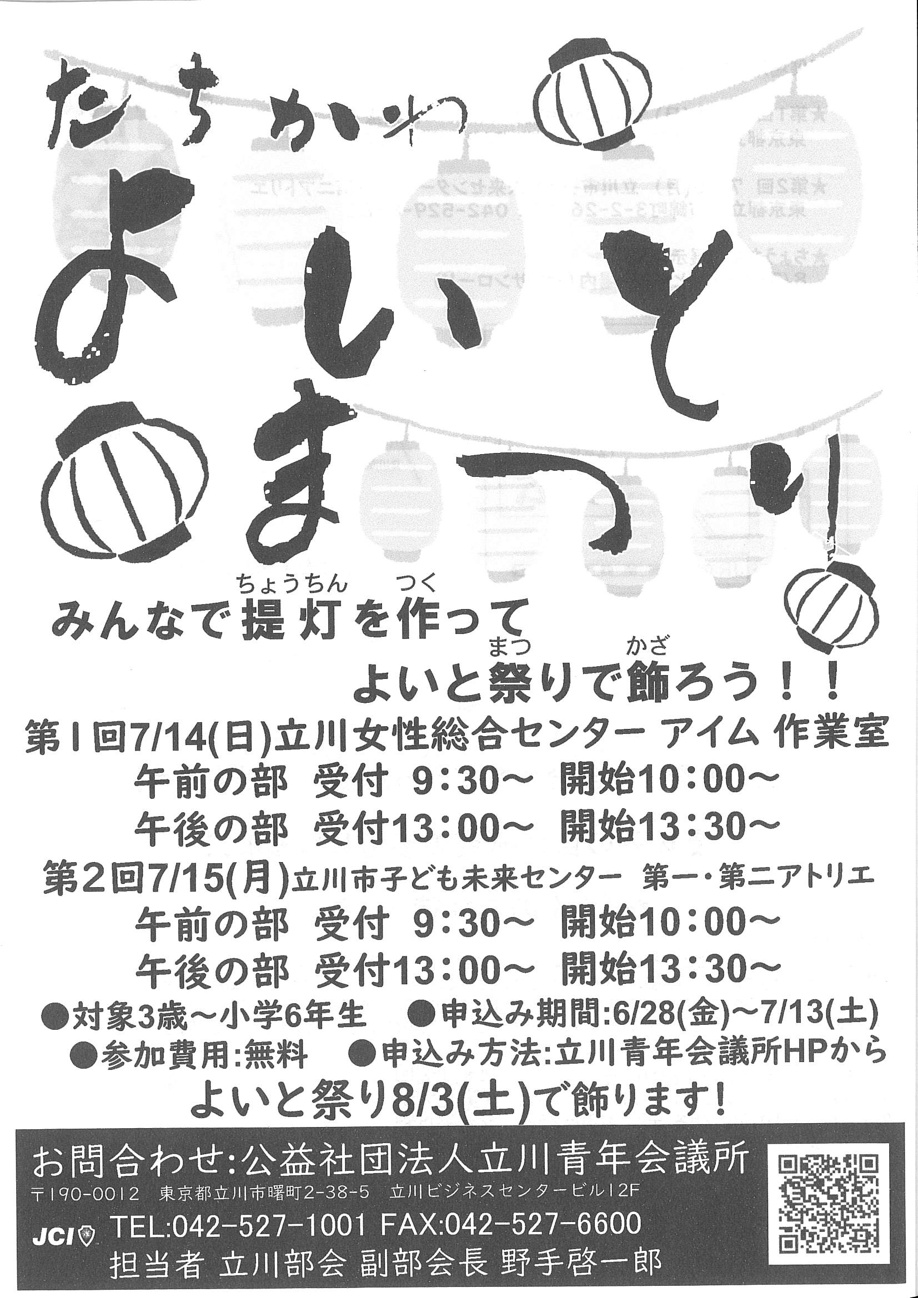 たちかわ
よいと
まつり
ちょうちん つく
みんなで提灯を作って
まつ かざ
よいと祭りで飾ろう！！
第1回7/14(日)立川女性総合センター アイム 作業室
午前の部 受付 9:30～ 開始10:00～
午後の部 受付13:00～ 開始13:30～
第2回7/15(月)立川市子ども未来センター 第一・第二アトリエ
午前の部 受付 9:30～ 開始10:00～
午後の部 受付13:00～ 開始13:30～
●対象3歳～小学6年生 ●申込み期間:6/28(金)～7/13(土)
●参加費用:無料 ●申込み方法:立川青年会議所HPから
よいと祭り8/3(土)で飾ります!
お問合わせ:公益社団法人立川青年会議所
〒190-0012 東京都立川市曙町2-38-5 立川ビジネスセンタービル12F
JCI TEL:042-527-1001 FAX:042-527-6600
担当者 立川部会 副部会長 野手啓一郎